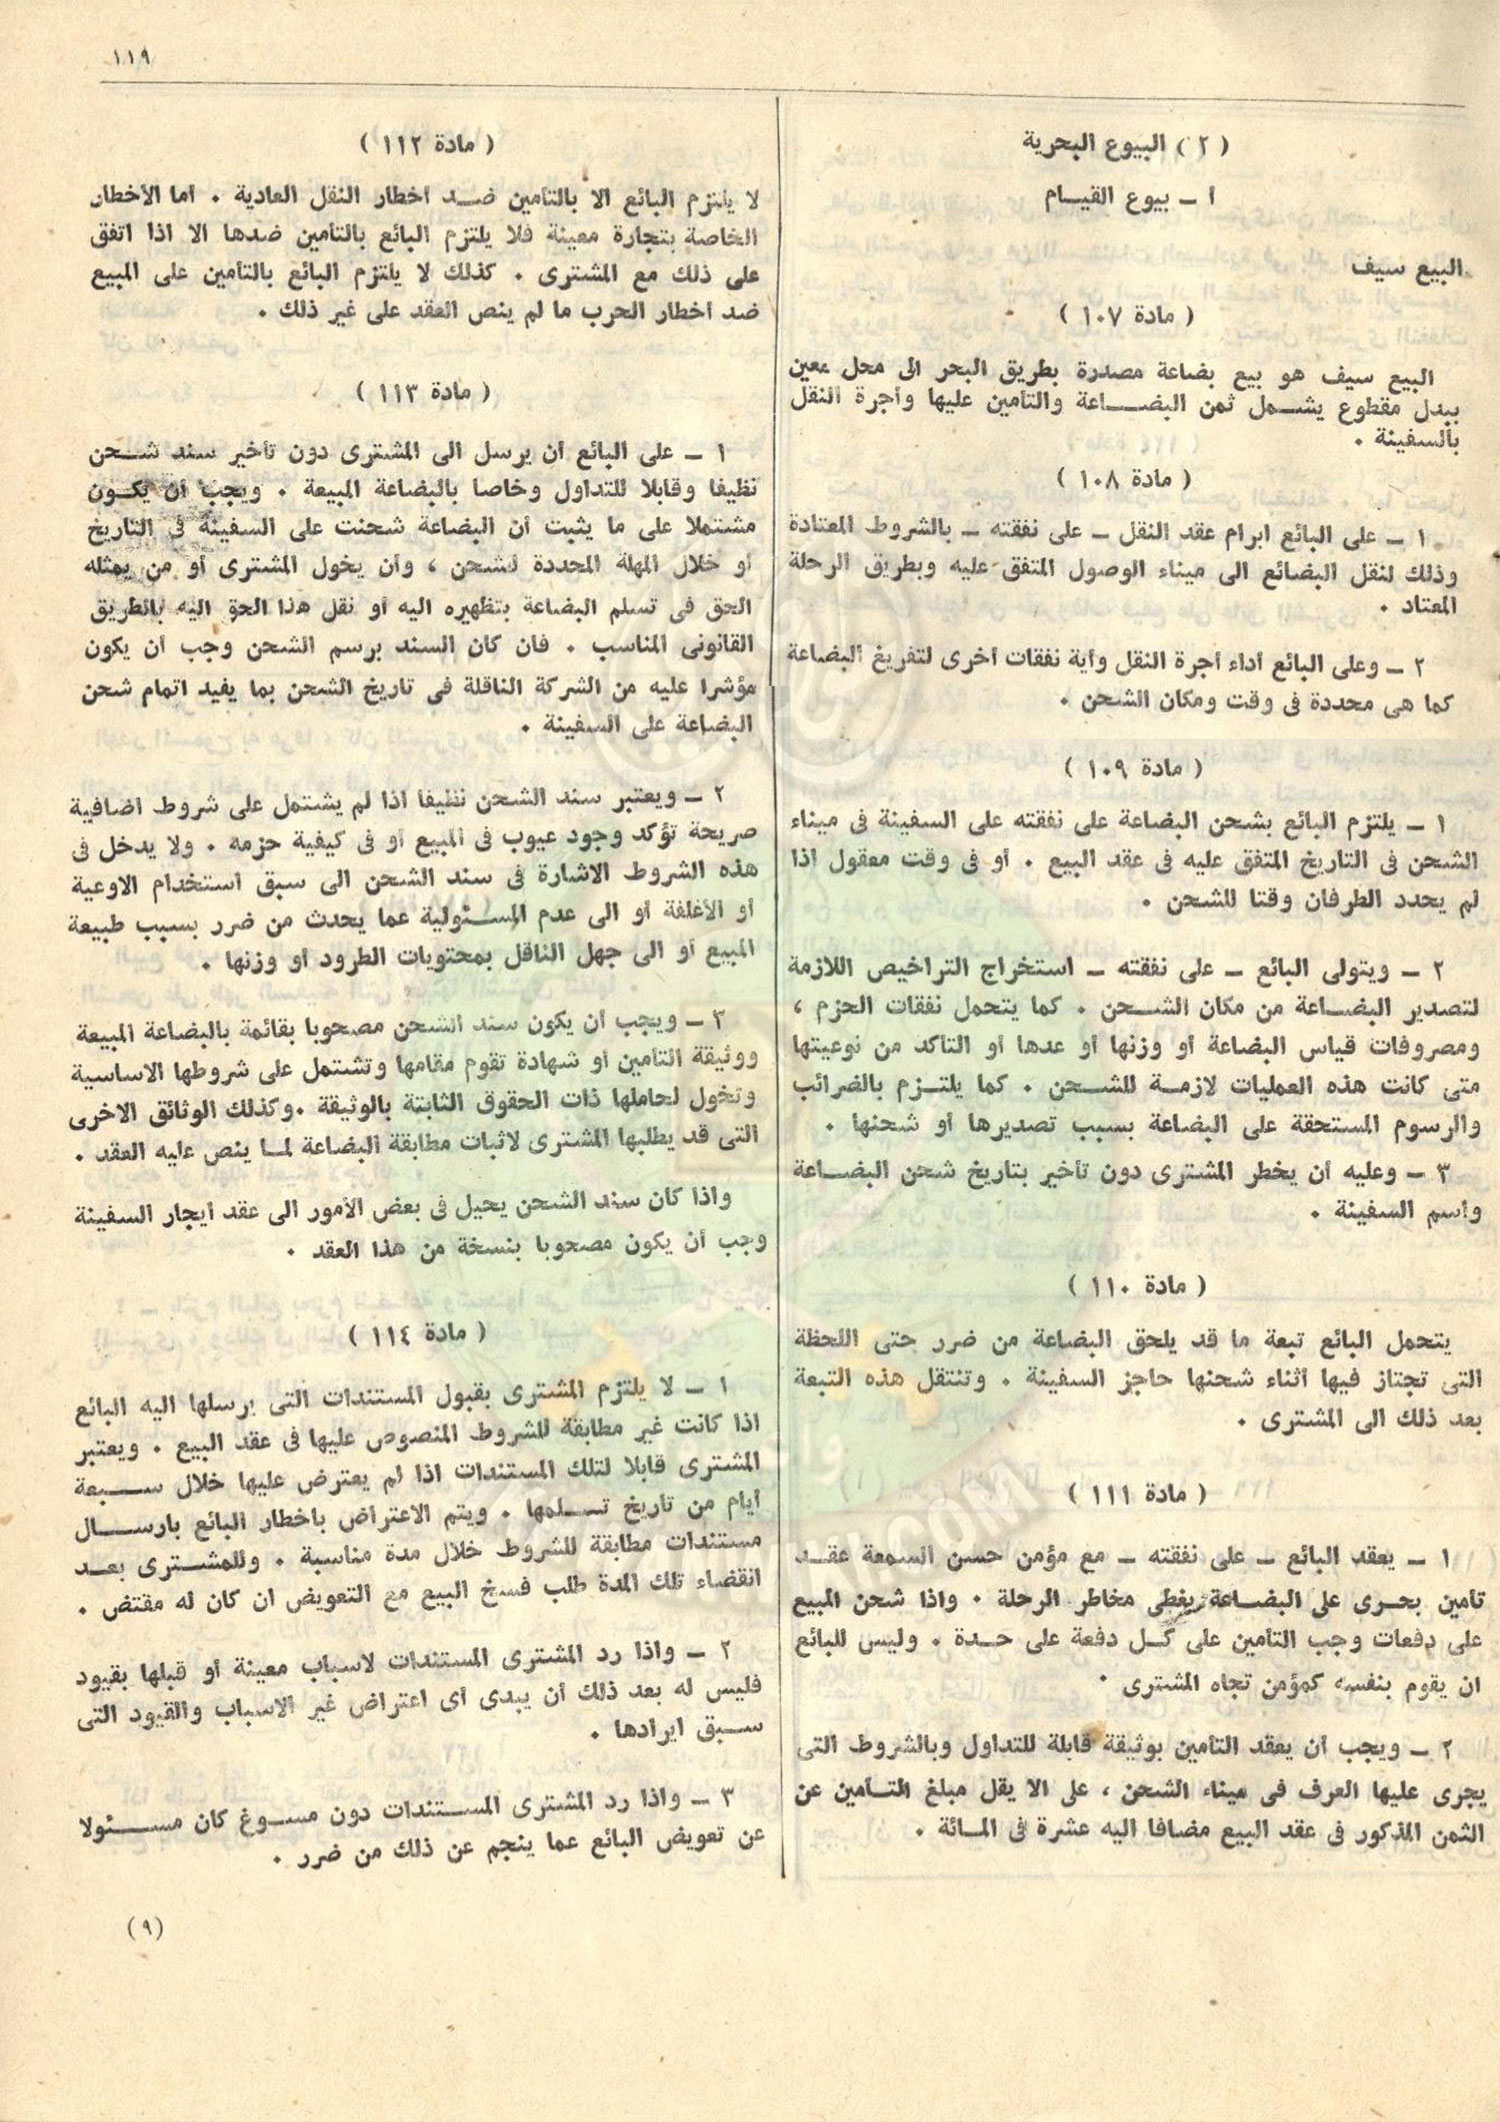 ١١٩
( ٢ ) البيوع البحرية
أ ــ بيوع القيــام
البيع سيف
( مادة ١٠٧ )
البيع سيف هو بيع بضاعة مصدرة بطريق البحر الى محل معين
ببدل مقطوع يشــمل ثمن البضــــاعة والتأمين عليها وأجرة النقل
بالسفينة .
( مادة ١٠٨ )
١ ــ على البائع ابرام عقد النقل ــ على نفقته ــ بالشروط المعتادة
وذلك لنقل البضائع الى ميناء الوصول المتفق عليه وبطريق الرحلة
المعتاد .
٢ ــ وعلى البائع أداء أجرة النقل وأية نفقات أخرى لتفريغ البضاعة
كما هى محددة فى وقت ومكان الشحن .
( مادة ١٠٩ )
١ ــ يلتزم البائع بشحن البضاعة على نفقته على السفينة فى ميناء
الشحن فى التاريخ المتفق عليه فى عقد البيع . أو فى وقت معقول اذا
لم يحدد الطرفان وقتا للشحن .
٢ ــ ويتولى البائع ــ على نفقته ــ استخراج التراخيص اللازمة
لتصدير البضــاعة من مكان الشــحن . كما يتحمل نفقات الحزم ،
ومصروفات قياس البضاعة أو وزنها أو عدها أو التأكد من نوعيتها
متى كانت هذه العمليات لازمــة للشــحن . كما يلتــزم بالضرائب
والرسوم المستحقة على البضاعة بسبب تصديرها أو شحنها .
٣ ــ وعليه أن يخطر المشترى دون تأخير بتاريخ شحن البضــاعة
واسم السفينة .
( مادة ١١٠ )
يتحمل البائع تبعة ما قد يلحق البضاعة من ضرر حتى اللحظة
التى تجتاز فيها أثناء شحنها حاجز السفينة . وتنتقل هذه التبعة
بعد ذلك الى المشترى .
( مادة ١١١ )
١ ــ يعقد البائع ــ على نفقته ــ مع مؤمن حسن السمعة عقــد
تأمين بحـرى على البضــاعة يغطى مخاطر الرحلة . واذا شحن المبيع
على دفعات وجب التأمين على كــل دفعة على حــدة . وليس للبائع
ان يقوم بنفسه كمؤمن تجاه المشترى .
٢ ــ ويجب أن يعقد التأمين بوثيقة قابلة للتداول وبالشروط التى
يجرى عليها العرف فى ميناء الشحن ، على الا يقل مبلغ التــأمين عن
الثمن المذكور فى عقد البيع مضافا اليه عشرة فى المـائة .
( مادة ١١٢ )
لا يلتزم البائع الا بالتأمين ضــد اخطار النقل العادية . أما الأخطار
الخاصة بتجارة معينة فلا يلتزم البائع بالتأمين ضدها الا اذا اتفق
على ذلك مع المشترى . كذلك لا يلتزم البائع بالتأمين على المبيع
ضد أخطار الحرب ما لم ينص العقد على غير ذلك .
( مادة ١١٣ )
١ ــ على البائع أن يرسل الى المشترى دون تأخير سند شــحن
نظيفا وقابلا للتداول وخاصا بالبضاعة المبيعة . ويجب أن يكــون
مشتملا على ما يثبت أن البضاعة شحنت على السفينة فى التاريخ
أو خلال المهلة المحددة لشحن ، وأن يخول المشترى أو من يمثله
الحق فى تسلم البضاعة بتظهيره اليه أو نقل هذا الحق اليه بالطريق
القانونى المناسب . فان كان السند برسم الشحن وجب أن يكون
مؤشرا عليه من الشركة الناقلة فى تاريخ الشحن بما يفيد اتمام شحن
البضاعة على السفينة .
٢ ــ ويعتبر سند الشحن نظيفا اذا لم يشتمل على شروط اضافية
صريحة تؤكد وجود عيوب فى المبيع أو فى كيفية حزمه . ولا يدخل فى
هذه الشروط الاشارة فى سند الشحن الى سبق استخدام الاوعية
أو الأغلفة أو الى عدم المسـئولية عما يحدث من ضرر بسبب طبيعة
المبيع أو الى جهل الناقل بمحتويات الطرود أو وزنها .
٣ ــ ويجب أن يكون سند الشحن مصحوبا بقائمة بالبضاعة المبيعة
ووثيقة التأمين أو شهادة تقوم مقامها وتشتمل على شروطها الاساسية
وتخول لحاملها ذات الحقوق الثابتة بالوثيقة .وكذلك الوثائق الاخرى
التى قد يطلبها المشترى لاثبات مطابقة البضاعة لمـا ينص عليه العقد .
واذا كان سند الشحن يحيل فى بعض الأمور الى عقد ايجار السفينة
وجب أن يكون مصحوبا بنسخة من هذا العقد .
( مادة ١١٤ )
١ ــ لا يلتزم المشترى بقبول المستندات التى يرسلها اليه البائع
اذا كانت غير مطابقة للشروط المنصوص عليها فى عقد البيع . ويعتبر
المشترى قابلا لتلك المستندات اذا لم يعترض عليها خلال ســـبعة
أيام من تاريخ تســـلمها . ويتم الاعتراض باخطار البائع بارســـال
مستندات مطابقة للشروط خلال مدة مناسبة . وللمشــترى بعــد
انقضاء تلك المدة طلب فسخ البيع مع التعويض ان كان له مقتض .
٢ ــ واذا رد المشترى المستندات لاسباب معينة أو قبلها بقيود
فليس له بعد ذلك أن يبدى أى اعتراض غير الاسباب والقيود التى
ســبق ايرادها .
٣ ــ واذا رد المشترى المســتندات دون مســوغ كان مســـئولا
عن تعويض البائع عما ينجم عن ذلك من ضرر .
(٩)